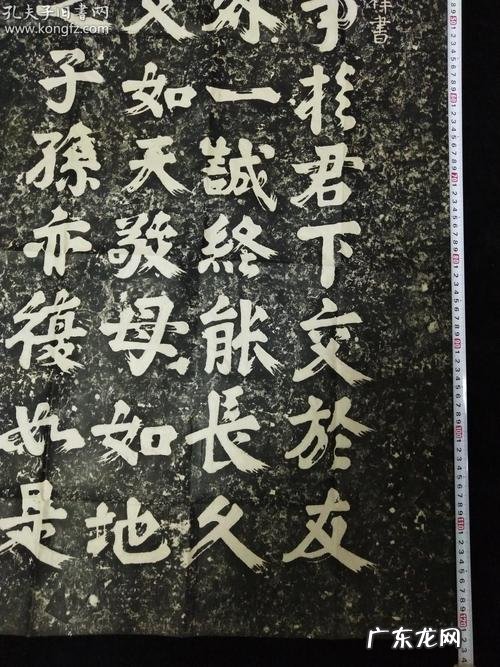 孔夫子旧书网
www.kongfz.com
書
事扵君下交於友
外一誠終能長久
父如天敬母如地
子孫亦復如是
70
80
90
100
110
120
广东龙网